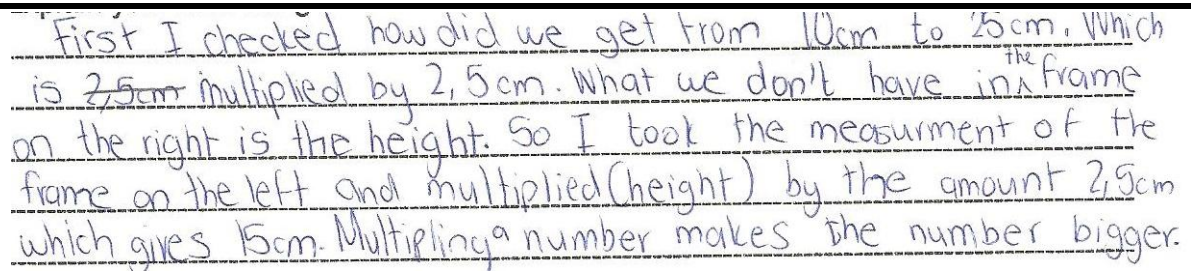 First I checked how did we get from 10cm to 25cm. Which
is 2,5cm multiplied by 2,5cm. What we don't have in the frame
on the right is the height. So I took the measurment of the
frame on the left and multiplied (height) by the amount 2,5cm
which gives 15cm. Multipling a number makes the number bigger.